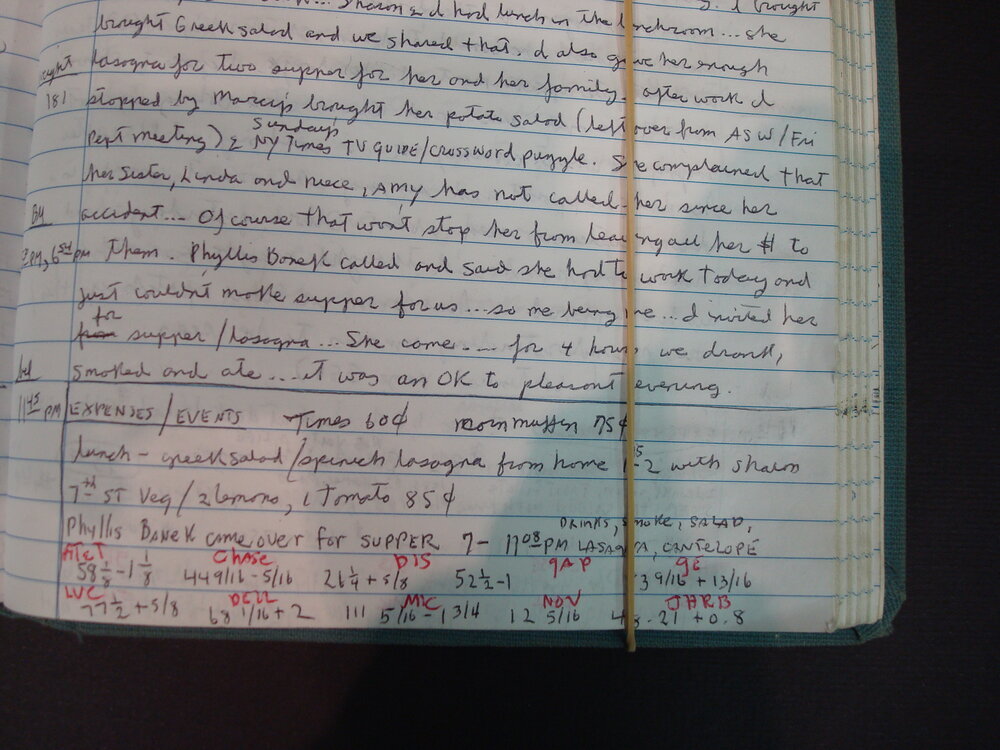 Sharon & I had lunch in the lunchroom... she
brought Greek salad and we shared that. I also gave her enough
lasagna for two supper for her and her family. after work I
181 stopped by Marcy's brought her potato salad (left over from ASW/Fri
Sunday's
Dept meeting) & NY Times TV GUIDE/crossword puzzle. She complained that
her sister, Linda and niece, AMY has not called her since her
accident... Of course that wont stop her from leaving all her $ to
them. Phyllis Banek called and said she had to work today and
just couldn't make supper for us... so me being me... I invited her
for
supper/lasagna... She came.... for 4 hours we drank,
smoked and ate... it was an OK to pleasant evening.
11 45 PM EXPENSES/EVENTS Times 60¢ corn muffin 75¢
lunch - greek salad/spinach lasagna from home 1 15-2 with sharon
7th ST Veg/2 lemons, 1 Tomato 85¢
DRINKS, smoke, SALAD,
Phyllis BANEK came over for SUPPER 7- 11 08 PM LASAGNA, CANTELOPE
AT&T CHASE DIS GAP GE
58 1/8 - 1 1/8 44 9/16 - 5/16 26 1/4 + 5/8 52 1/2 - 1 39/16 + 13/16
LUC DELL MIC NOV JHRB
77 1/2 + 5/8 68 1/16 + 2 111 5/16 - 1 3/4 12 5/16 .21 + 0.8